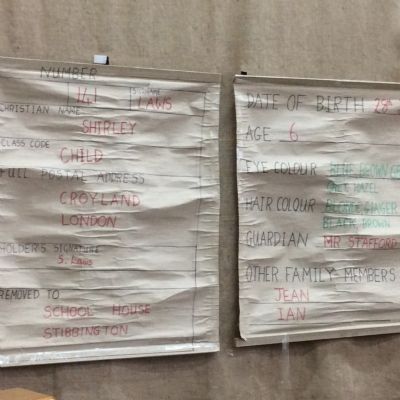 NUMBER
141 SURNAME LAWS
CHRISTIAN NAME
SHIRLEY
CLASS CODE
CHILD
FULL POSTAL ADDRESS
CROYLAND
LONDON
HOLDER'S SIGNATURE
S. Laws
REMOVED TO
SCHOOL HOUSE
STIBBINGTON
DATE OF BIRTH 28th
AGE 6
EYE COLOUR BLUE BROWN
GREY HAZEL
HAIR COLOUR BLONDE GINGER
BLACK BROWN
GUARDIAN MR STAFFORD
OTHER FAMILY MEMBERS
JEAN
IAN